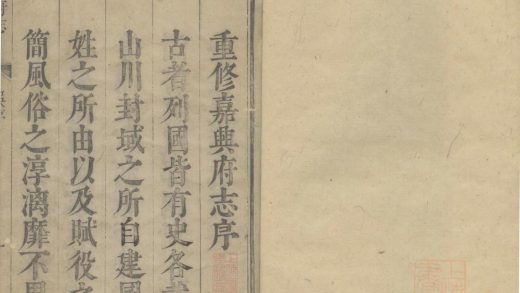 重修嘉興府志序
古者列國皆有史各
山川封域之所自建
姓之所由以及賦役
簡風俗之淳漓靡不